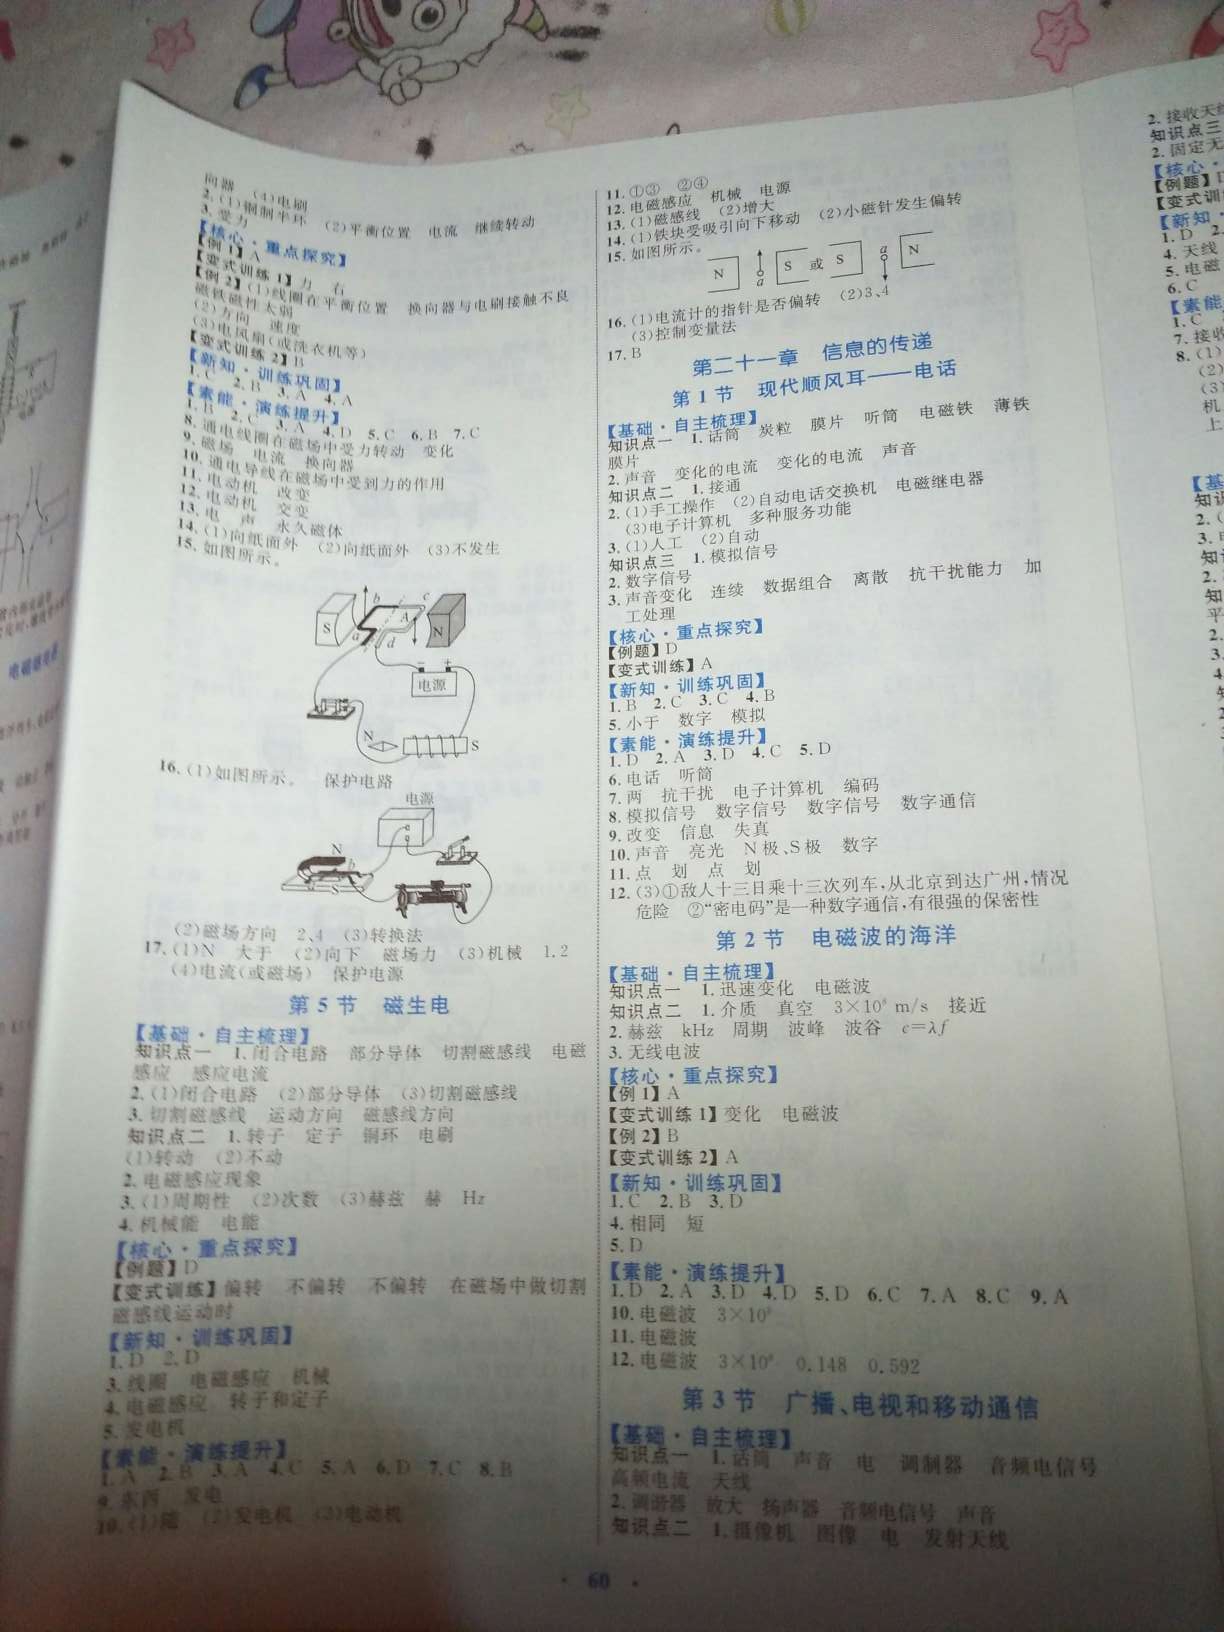 向器　(4)电刷
2.(1)铜制半环　(2)平衡位置　电流　继续转动
3.受力
【核心·重点探究】
【例1】A
【变式训练1】力　右
【例2】(1)线圈在平衡位置　换向器与电刷接触不良
磁铁磁性太弱
(2)方向　速度
(3)电风扇(或洗衣机等)
【变式训练2】B
【新知·训练巩固】
1.C　2.B　3.A　4.A
【素能·演练提升】
1.B　2.C　3.A　4.D　5.C　6.B　7.C
8.通电线圈在磁场中受力转动　变化
9.磁场　电流　换向器
10.通电导线在磁场中受到力的作用
11.电动机　改变
12.电动机　交变
13.电　声　永久磁体
14.(1)向纸面外　(2)向纸面外　(3)不发生
15.如图所示。
S a b c d A N
－ ＋
电源
N S
16.(1)如图所示。　保护电路
电源
N b
S
(2)磁场方向　2、4　(3)转换法
17.(1)N　大于　(2)向下　磁场力　(3)机械　1.2
(4)电流(或磁场)　保护电源
第5节　磁生电
【基础·自主梳理】
知识点一　1.闭合电路　部分导体　切割磁感线　电磁
感应　感应电流
2.(1)闭合电路　(2)部分导体　(3)切割磁感线
3.切割磁感线　运动方向　磁感线方向
知识点二　1.转子　定子　铜环　电刷
(1)转动　(2)不动
2.电磁感应现象
3.(1)周期性　(2)次数　(3)赫兹　赫　Hz
4.机械能　电能
【核心·重点探究】
【例题】D
【变式训练】偏转　不偏转　不偏转　在磁场中做切割
磁感线运动时
【新知·训练巩固】
1.D　2.D
3.线圈　电磁感应　机械
4.电磁感应　转子和定子
5.发电机
【素能·演练提升】
1.A　2.B　3.A　4.C　5.A　6.D　7.C　8.B
9.东西　发电
10.(1)随　(2)发电机　(3)电动机
11.①③　②④
12.电磁感应　机械　电源
13.(1)磁感线　(2)增大
14.(1)铁块受吸引向下移动　(2)小磁针发生偏转
15.如图所示。
N a S 或 S a N
16.(1)电流计的指针是否偏转　(2)3、4
(3)控制变量法
17.B
第二十一章　信息的传递
第1节　现代顺风耳——电话
【基础·自主梳理】
知识点一　1.话筒　炭粒　膜片　听筒　电磁铁　薄铁
膜片
2.声音　变化的电流　变化的电流　声音
知识点二　1.接通
2.(1)手工操作　(2)自动电话交换机　电磁继电器
(3)电子计算机　多种服务功能
3.(1)人工　(2)自动
知识点三　1.模拟信号
2.数字信号
3.声音变化　连续　数据组合　离散　抗干扰能力　加
工处理
【核心·重点探究】
【例题】D
【变式训练】A
【新知·训练巩固】
1.B　2.C　3.C　4.B
5.小于　数字　模拟
【素能·演练提升】
1.D　2.A　3.D　4.C　5.D
6.电话　听筒
7.两　抗干扰　电子计算机　编码
8.模拟信号　数字信号　数字信号　数字通信
9.改变　信息　失真
10.声音　亮光　N极、S极　数字
11.点　划　点　划
12.(3)①敌人十三日乘十三次列车,从北京到达广州,情况
危险　②“密电码”是一种数字通信,有很强的保密性
第2节　电磁波的海洋
【基础·自主梳理】
知识点一　1.迅速变化　电磁波
知识点二　1.介质　真空　3×10⁸ m/s　接近
2.赫兹　kHz　周期　波峰　波谷　c=λf
3.无线电波
【核心·重点探究】
【例1】A
【变式训练1】变化　电磁波
【例2】B
【变式训练2】A
【新知·训练巩固】
1.C　2.B　3.D
4.相同　短
5.D
【素能·演练提升】
1.D　2.A　3.D　4.D　5.D　6.C　7.A　8.C　9.A
10.电磁波　3×10⁸
11.电磁波
12.电磁波　3×10⁸　0.148　0.592
第3节　广播、电视和移动通信
【基础·自主梳理】
知识点一　1.话筒　声音　电　调制器　音频电信号
高频电流　天线
2.调谐器　放大　扬声器　音频电信号　声音
知识点二　1.摄像机　图像　电　发射天线
· 60 ·
2.接收天线
知识点三
2.固定无
【核心·
【例题】D
【变式训
【新知·
1.D　2.
4.天线
5.电磁
6.C
【素能
1.C
7.接收
8.(1)
(2)
(3)
机
上